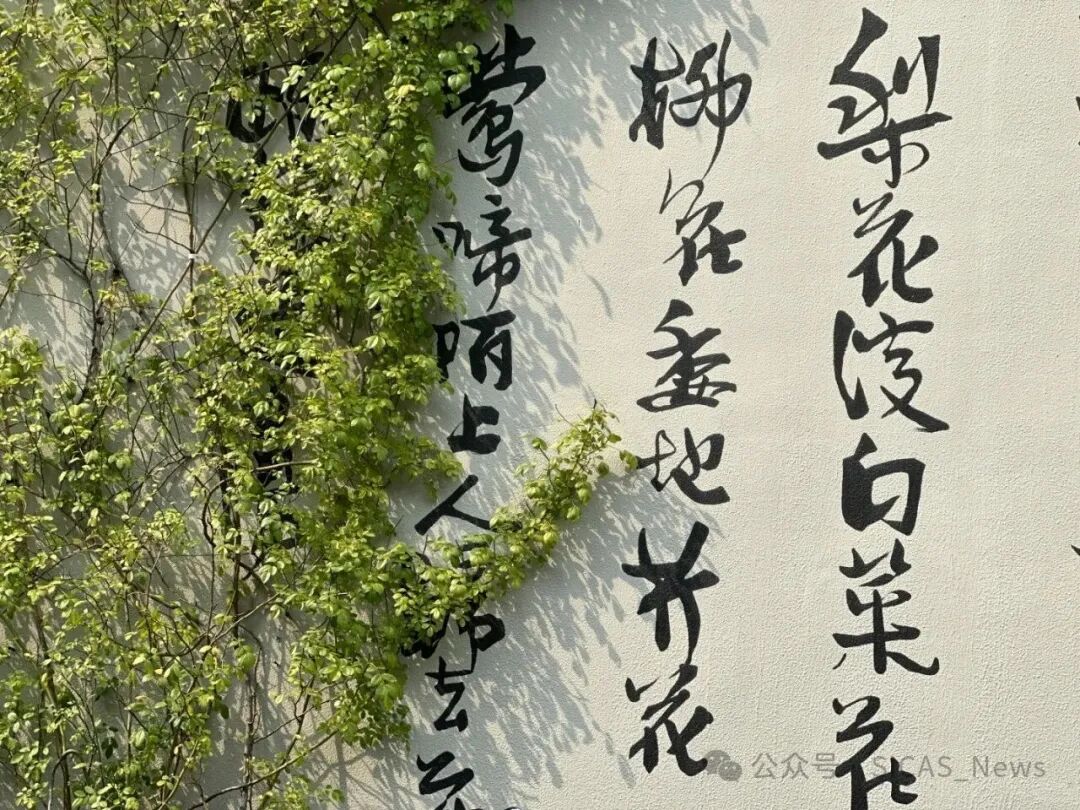 梨花淡白菜花
柳花委地芥花
鶯啼陌上人歸去花
公众号 · SICAS_News